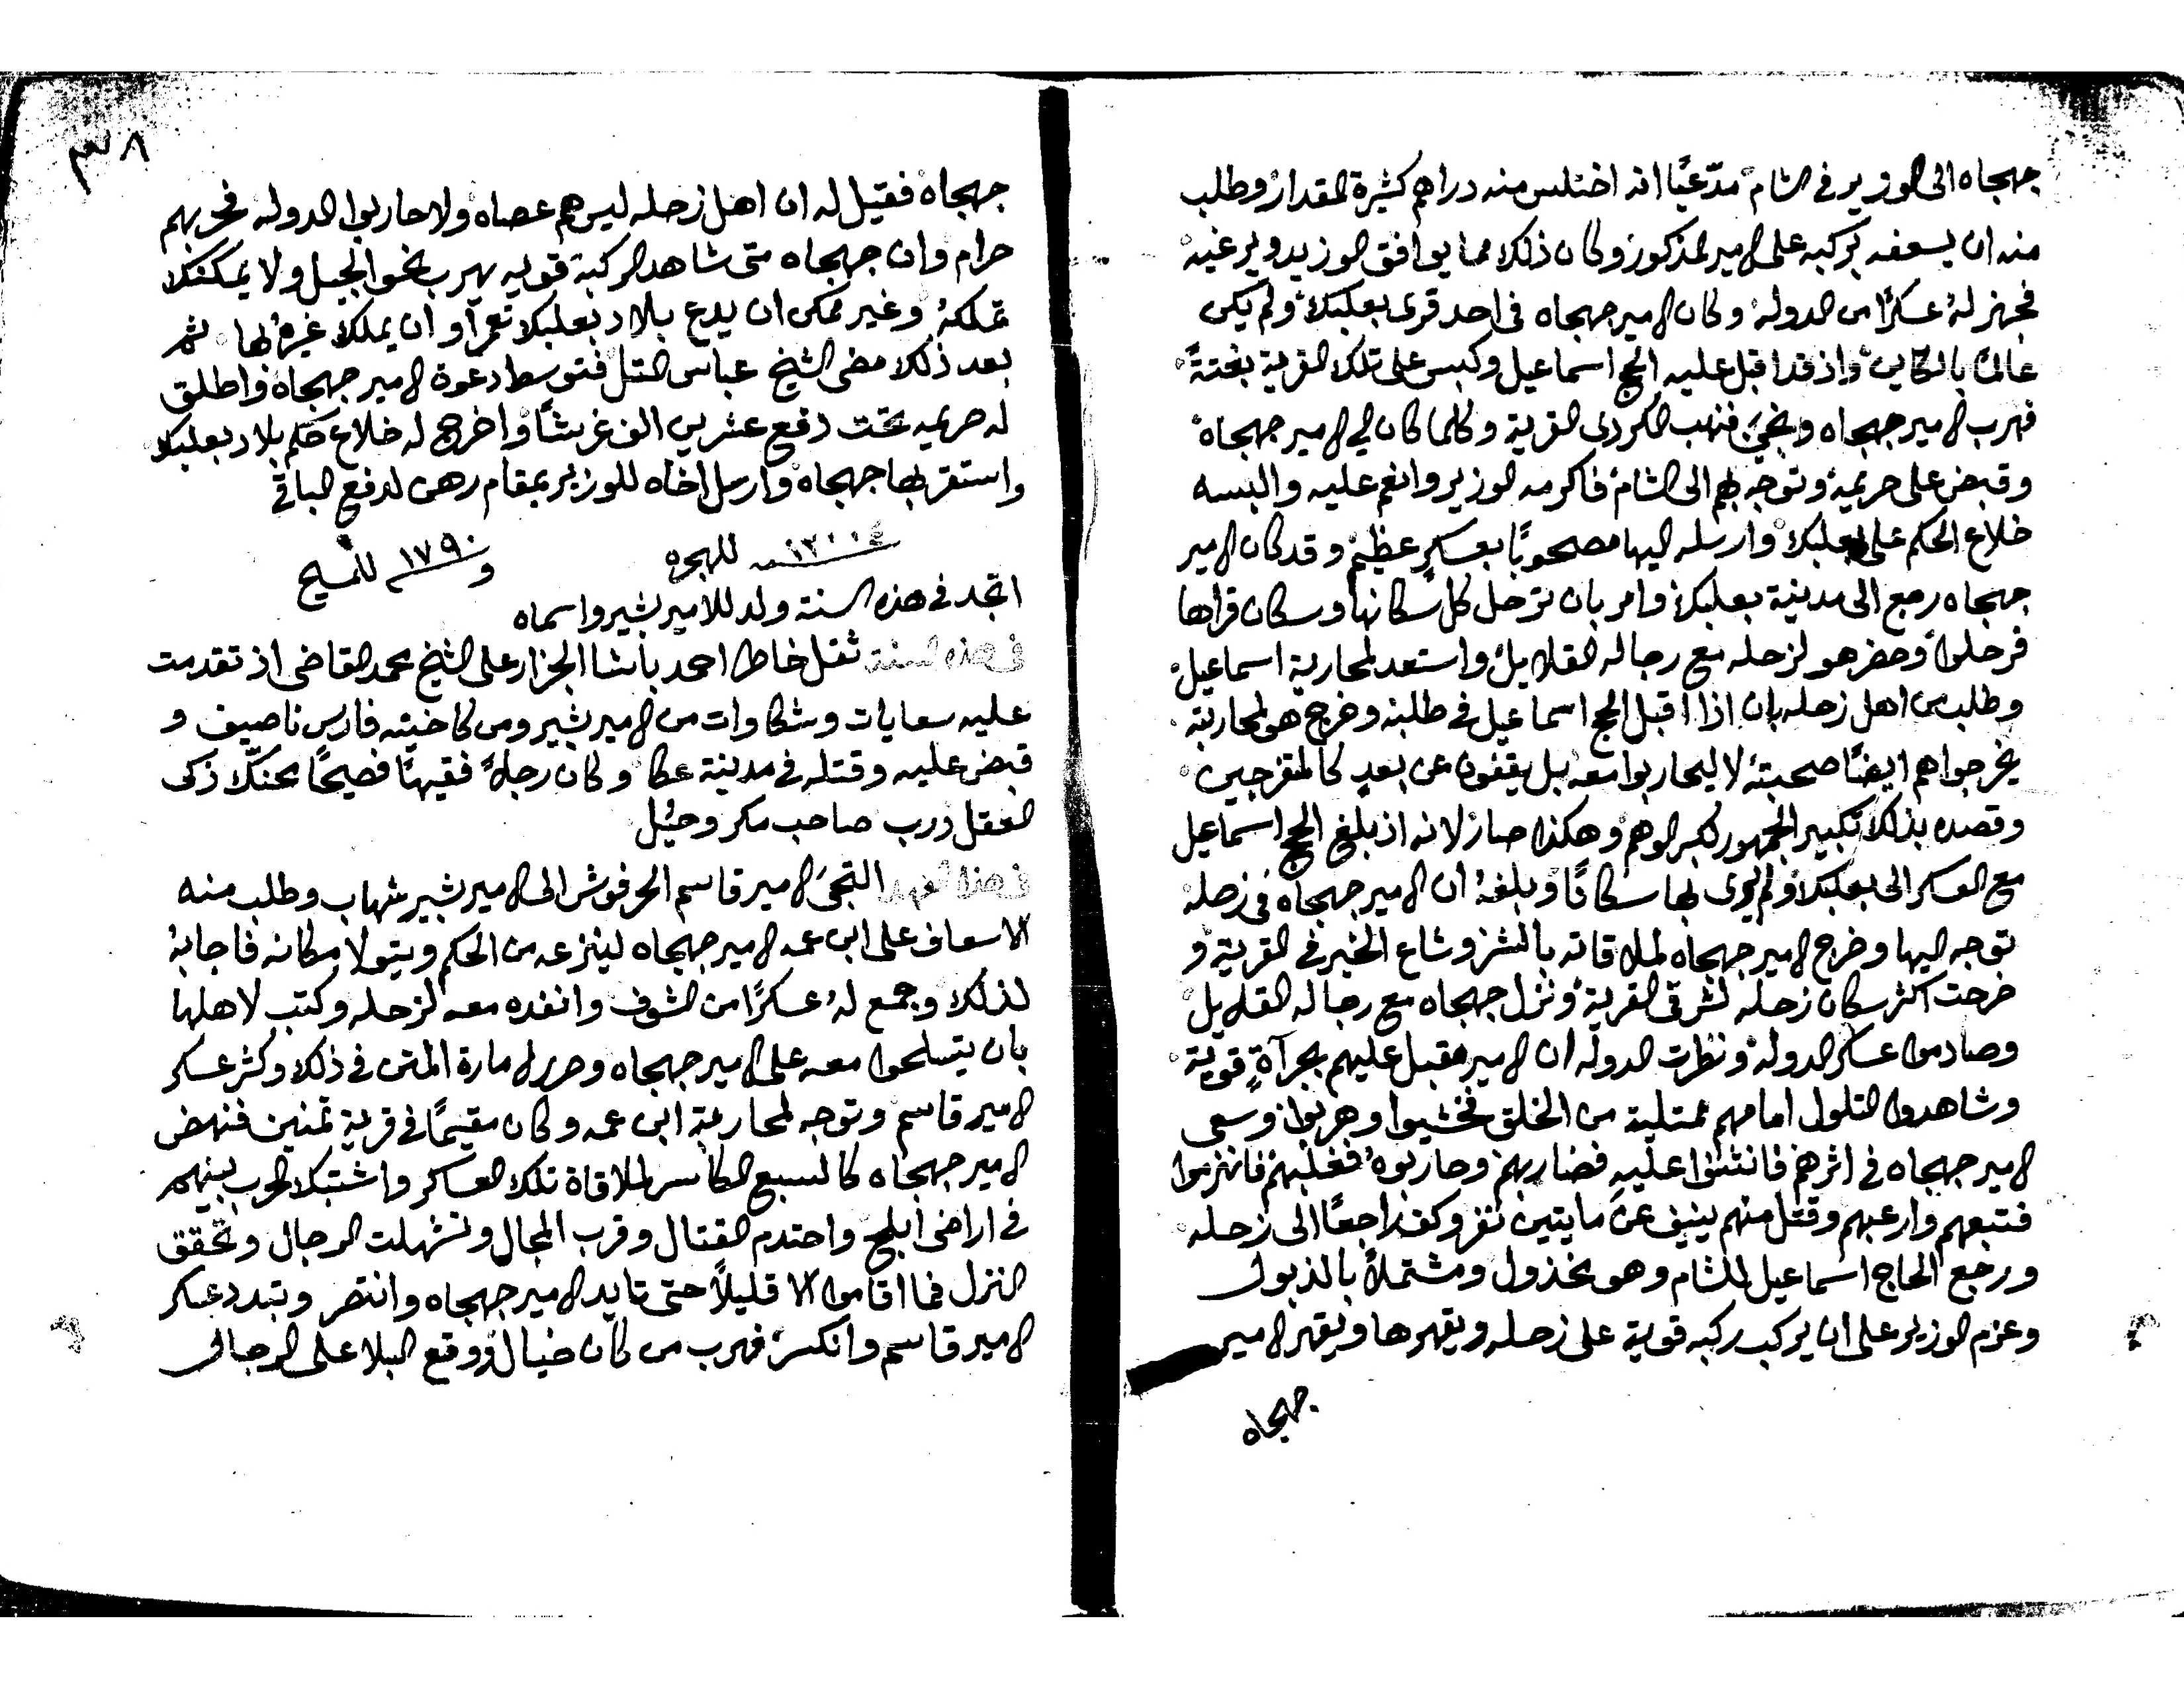 جهجاه الى الوزير في الشام مدّعيًا انه اختلس منه دراهم كثيرة المقدار وطلب
منه ان يسعفه بركبه على الامير المذكور وكان ذلك مما يوافق الوزير ويرغبه
فجهز لهُ عسكرًا من الدوله وكان الامير جهجاه في احد قرى بعلبك ولم يكن
عالمًا بالكاين واذ قد اقبل عليه الحج اسماعيل وكبس على تلك القرية بغتتةً
فهرب الامير جهجاه ونجيَ فنهب الكردى القرية وكلما كان الي الامير جهجاه
وقبض على حريمهُ وتوجه بهم الى الشام فاكرمه الوزير وانعم عليه والبسه
خلاع الحكم على بعلبك وارسله اليها مصحوبًا بعسكرٍ عظيم وقد كان الامير
جهجاه رجع الى مدينية بعلبك وامر بان ترحل كل سكانها وسكان قراها
فرحلوا وحضر هو لزحله مع رجاله القلايل واستعد لمحاربة اسماعيل
وطلب من اهل زحله بان اذا اقبل الحج اسماعيل في طلبنه وخرج هو لمحاربته
يخرجوا هم ايضًا صحبتهُ لا ليحاربوا معه بل يقفون عن بعدٍ كالمتفرجين
وقصده بذلك تكبير الجمهور لكبر الوهم وهكذا صار لانه اذ بلغ الحج اسماعيل
مع العسكر الى بعلبك ولم يرى بها سكانًا وبلغهُ ان الامير جهجاه في زحله
توجه اليها وخرج الامير جهجاه لملاقاته بالشر وشاع الخبر في القرية و
خرجت اكثر سكان زحله لشرقي القرية ونزل جهجاه مع رجاله القلايل
وصادموا عسكر الدوله ونظرت الدوله ان الامير مقبل عليهم بجرآةٍ قوية
وشاهدوا التلول امامهم ممتلية من الخلق فخشيوا وهربوا وسعى
الامير جهجاه في اثرهم فانثنوا عليهِ فضاربهم وحاربوهُ فغلبهم فانهزموا
فتبعهم وارعبهم وقتل منهم ينيف عن مايتين نفر وكف راجعًا الى زحله
ورجع الحاج اسماعيل للشام وهو مخذول ومشتملاً بالذبول
وعزم الوزير على ان يركب ركبه قوية على زحله ويقهرها ويقهر الامير
جهجاه
٣٨
جهجاه فقيل له ان اهل زحله ليس هم عصاه ولا حاربوا الدوله فحربهم
حرام وان جهجاه متى شاهد الركبة قويه يهرب نحو الجبل ولا يمكنك
تملكهُ وغير ممكن ان يدع بلاد بعلبك تعمر او ان يملك غيرهُ بها ثم
بعد ذلك مضى الشيخ عباس التل فتوسط دعوة الامير جهجاه واطلق
له حريمه تحت دفع عشرين الف غرشًا واخرج له خلاع حكم بلاد بعلبك
واستقر بها جهجاه وارسل اخاه للوزير بمقام رهن لدفع الباقي
١٢٠٠٤ سنه للهجره و ١٧٩٠ للمسيح
اتجد في هذه السنة ولد للامير بشير واسماه
في هذه السنة ثقل خاطر احمد باشا الجزار على الشيخ محمد القاضي اذ تقدمت
عليه سعايات وشكاوات من الامير بشير ومن كاخيته فارس ناصيف و
قبض عليه وقتله في مدينة عكا وكان رجلاً فقيهًا فصيحًا محنكًا ذكى
العقل درب صاحب مكر وحيُل
في هذا العهد التجىَ الامير قاسم الحرفوش الى الامير بشير شهاب وطلب منه
الاسعاف على ابن عمه الامير جهجاه لينزعه من الحكم ويتولا مكانه فاجابهُ
لذلك وجمع لهُ عسكرًا من الشوف وانفده معه لزحله وكتب لاهلها
بان يتسلحوا معه على الامير جهجاه وحرر لامارة المتن في ذلك وكثر عسكر
الامير قاسم وتوجه لمحاربة ابن عمه وكان مقيمًا في قرية تمنين فنهض
الامير جهجاه كالسبع الكاسر لملاقاة تلك العساكر واشتبك الحرب بينهم
في اراضى ابلح واحتدم القتال وقرب المجال وتشهلت الرجال وتحقق
النزل فما اقاموا الا قليلاً حتى تايد الامير جهجاه وانتصر وتبدد عسكر
الامير قاسم وانكسر فهرب من كان خيال ووقع البلا على الرجال